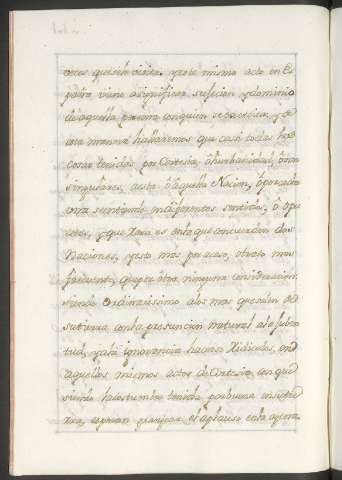 otros que sale visita, y este mismo acto en Es
paña viene a significar sujecion, y dominio
de aquella persona con quien se exercita, y de
esta manera hallaremos que casi todas las
cosas tenidas por Cortesia, ô Vrbanidad, ô son
singulares, a esta ô a aquella Nacion,
ô
tos, y que Rara es en la que concuerdan dos
Naciones, y esto mas por acaso, ô trato mas
frequente, que por ôtra ninguna consideracion
siendo Ordinarissimo a los mas que salen de
su tierra con la presuncion natural a la Jubentud,
y a la ignorancia hacerse Ridiculos, en
aquellos mismos actos de Cortesia, con que
siendo la costumbre tenida por buena en su tie
rra, esperan grangear el aplauso en la agena